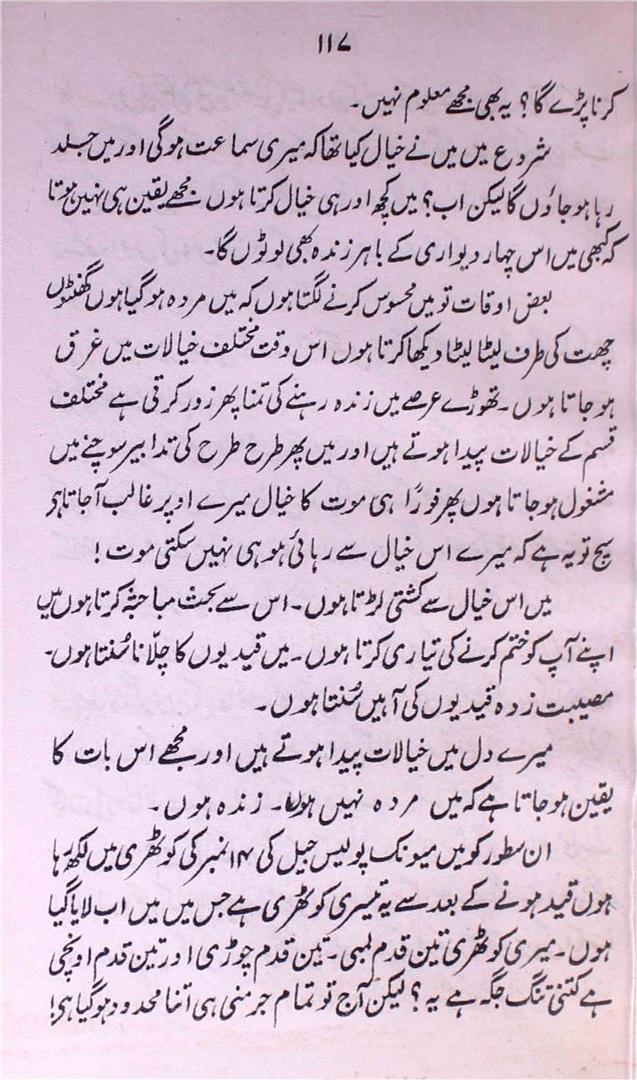 ۱۱۷
کرنا پڑے گا؟ یہ بھی مجھے معلوم نہیں۔
شروع میں میں نے خیال کیا تھا کہ میری سماعت ہوگی اور میں جلد
رہا ہو جاؤں گا لیکن اب؟ میں کچھ اور ہی خیال کرتا ہوں مجھے یقین ہی نہیں ہوتا
کہ کبھی میں اس چہار دیواری کے باہر زندہ بھی لوٹوں گا۔
بعض اوقات تو میں محسوس کرنے لگتا ہوں کہ میں مردہ ہو گیا ہوں گھنٹوں
چھت کی طرف لیٹا لیٹا دیکھا کرتا ہوں اس وقت مختلف خیالات میں غرق
ہو جاتا ہوں۔ تھوڑے عرصے میں زندہ رہنے کی تمنا پھر زور کرتی ہے مختلف
قسم کے خیالات پیدا ہوتے ہیں اور میں پھر طرح طرح کی تدابیر سوچنے میں
مشغول ہو جاتا ہوں پھر فوراً ہی موت کا خیال میرے اوپر غالب آجاتا ہی
سچ تو یہ ہے کہ میرے اس خیال سے رہائی ہو ہی نہیں سکتی موت!
میں اس خیال سے کشتی لڑتا ہوں۔ اس سے بحث مباحثہ کرتا ہوں میں
اپنے آپ کو ختم کرنے کی تیاری کرتا ہوں۔ میں قیدیوں کا چلّانا سُنتا ہوں۔
مصیبت زدہ قیدیوں کی آہیں سُنتا ہوں۔
میرے دل میں خیالات پیدا ہوتے ہیں اور مجھے اس بات کا
یقین ہو جاتا ہے کہ میں مردہ نہیں ہوں۔ زندہ ہوں۔
ان سطور کو میں میونک پولیس جیل کی ۱۴ نمبر کی کوٹھری میں لکھ رہا
ہوں قید ہونے کے بعد سے یہ تیسری کوٹھری ہے جس میں میں اب لایا گیا
ہوں۔ میری کوٹھری تین قدم لمبی۔ تین قدم چوڑی اور تین قدم اونچی
ہے کتنی تنگ جگہ ہے یہ؟ لیکن آج تو تمام جرمنی ہی اتنا محدود ہو گیا ہی!